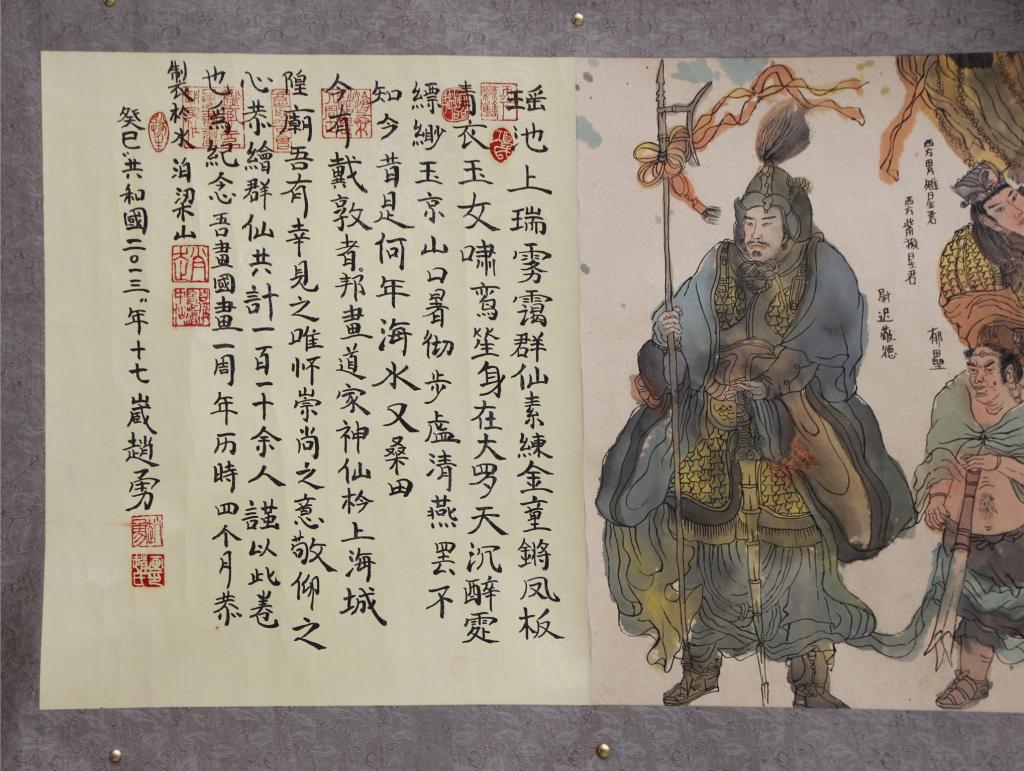 西方胃雉星君
西方觜猴星君
尉迟敬德
郁壘
瑶池上瑞雾霭群仙素練金童鏘凤板
青衣玉女啸鸾笙身在大罗天沉醉雯
縹緲玉京山口暑彻步虚清燕罢不
知今昔是何年海水又桑田
今有戴敦者邦畫道家神仙於上海城
隍廟吾有幸見之唯怀崇尚之意敬仰之
心恭繪群仙共計一百一十余人謹以此卷
也為紀念吾畫國畫一周年历時四个月恭
製於水泊梁山
癸巳"共和國二〇一三"年十七嵗趙勇